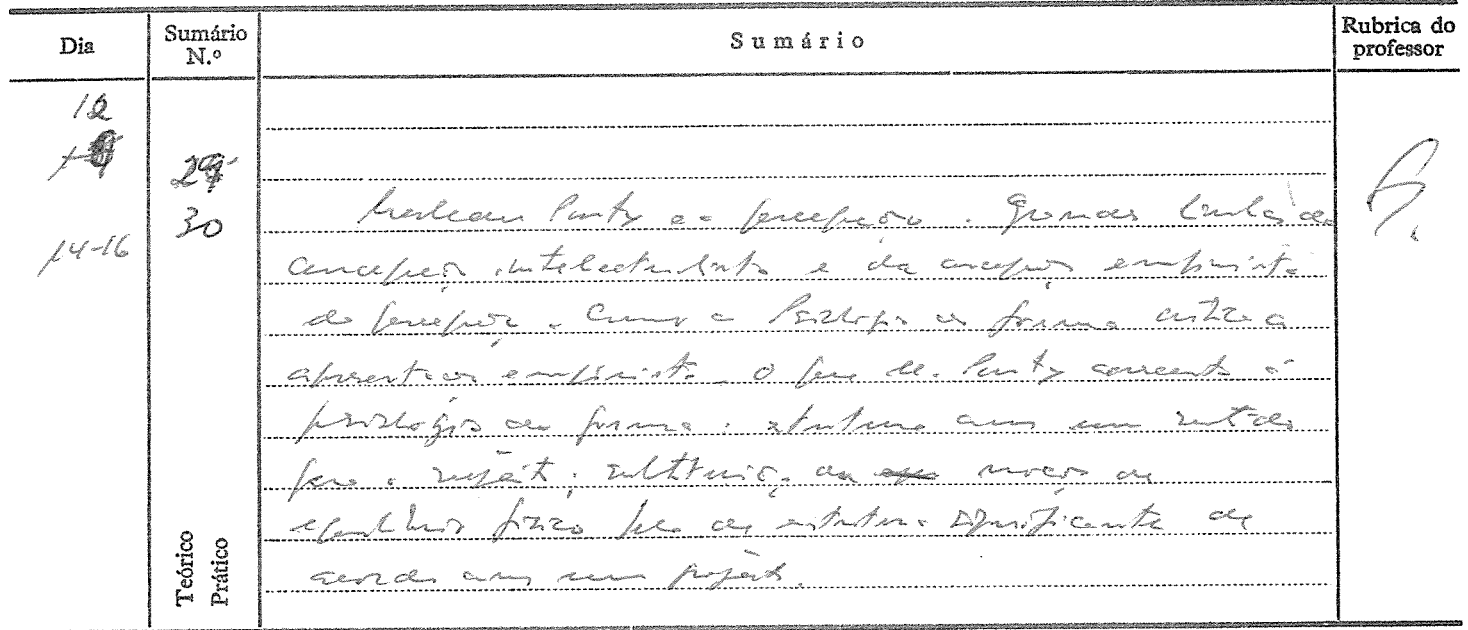 Dia
Sumário N.º
Sumário
Rubrica do professor
12
29
30
14-16
Merleau Ponty e a percepção. Grandes linhas da
concepção intelectualista e da concepção empirista
da percepção. Como a Psicologia da forma critica a
empirista. O que M. Ponty acrescenta à
psicologia da forma: estrutura com um sentido
para o sujeito; substituição da noção de
equilíbrio físico pela de estrutura significante de
acordo com um projecto.
Teórico
Prático